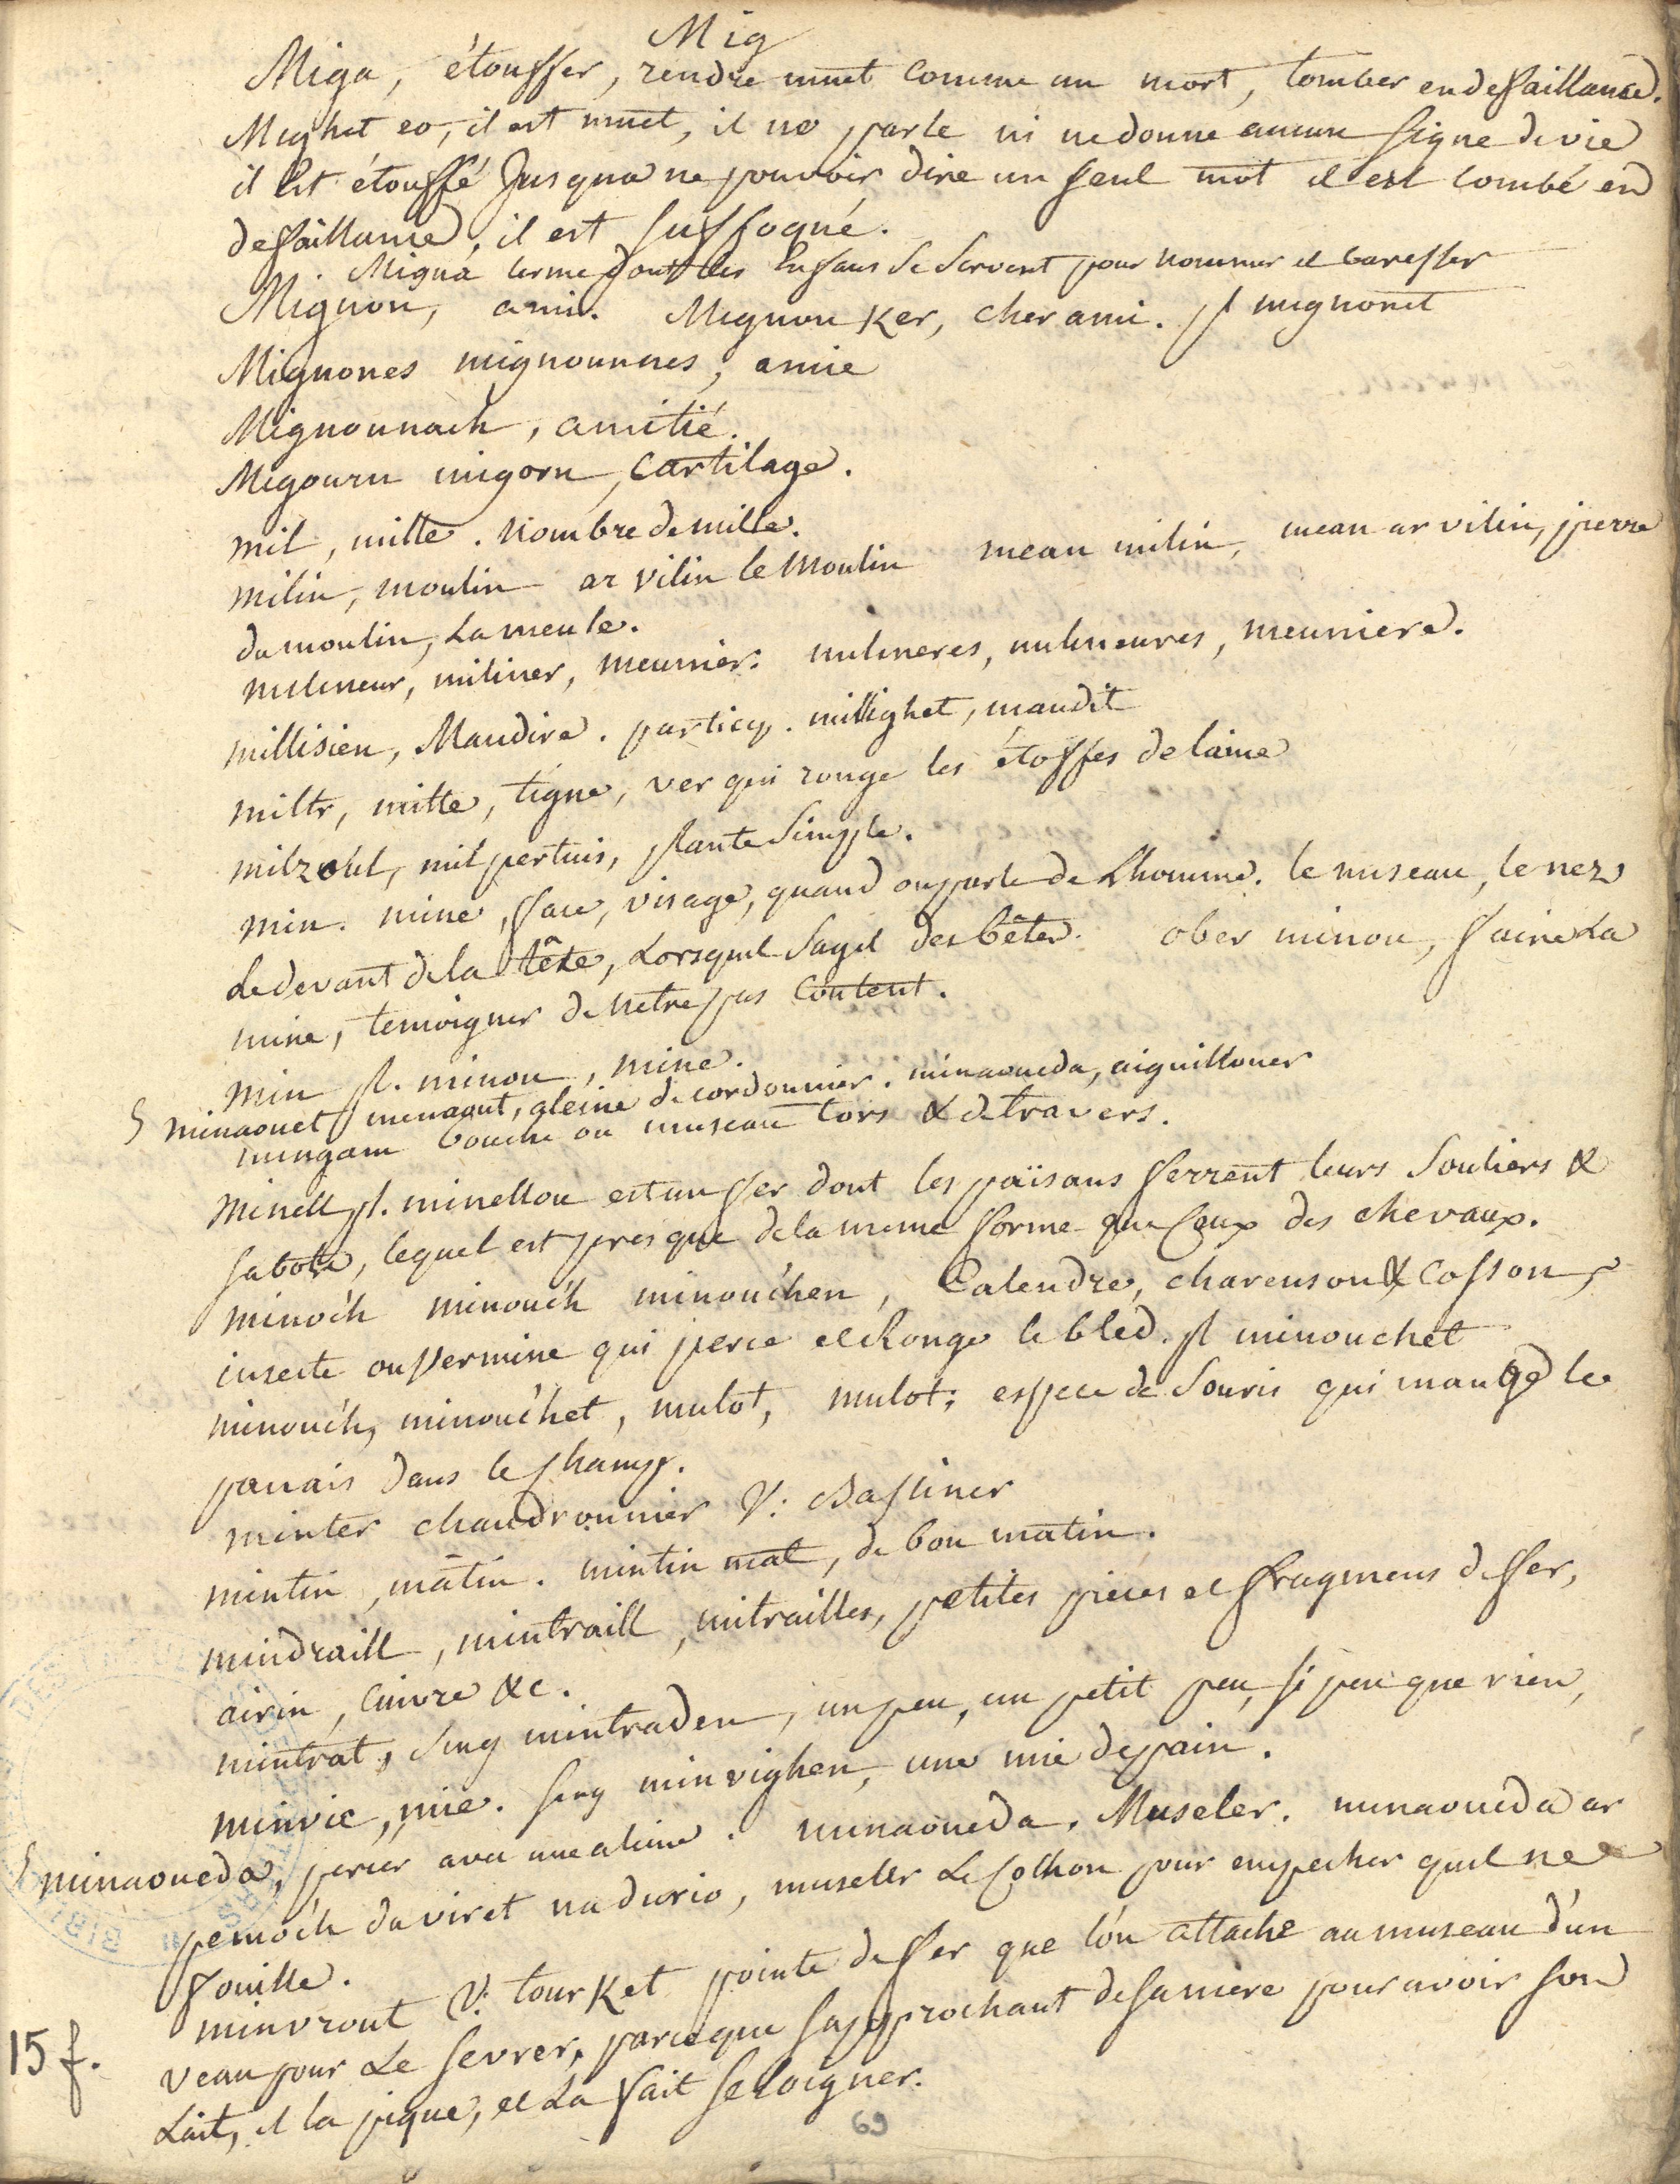 Mig
Miga, étouffer, rendre muet comme un mort, tomber en defaillance.
Mighet eo, il est muet, il ne parle ni ne donne aucun signe de vie
il est étouffé Jusqua ne pouvoir dire un seul mot il est tombé en
defaillance, il est suffoqué.
Migna terme dont les Enfans se servent pour nommer et caresser
Mignon, ami. Mignon Ker, cher ami. pl mignonet
Mignones mignounnes, amie
Mignounach, amitié.
Migourn migorn, cartilage.
mil, mille. Nombre de mille.
milin, moulin ar vilin le Moulin mean milin, mean ar vilin, pierre
du moulin, La meule.
milineur, miliner, meunier. milineres, milineures, meuniere.
millisien, Maudire. particip. millighet, maudit
miltr, mitte, tigne, ver qui ronge les étoffes de laine
milzoul, mil pertuis, plante simple.
min. mine, face, visage, quand on parle de Lhomme. le museau, le nez
Le devant de la tête, Lorsquil sagit des bêtes. ober minou, faire La
mine, temoigner de netre pas content.
min pl. minou, mine.
minaouet minaout, aleine de cordonnier. minaoueda, aiguilloner
mingam bouche ou museau tors & de travers.
minell pl. minellou est un fer dont les païsans ferrent leurs souliers &
sabots, lequel est presque de la meme forme que ceux des chevaux.
minoc'h minouc'h minouc'hen, Calendre, charenson & Cosson,
insecte ou vermine qui perce et Ronge le bled. pl minouchet
minouc'h, minouc'het, mulot, mulot; espece de souris qui mange le
panais dans le champ.
minter chaudronnier V: Bassiner
mintin, matin. mintin mat, de bon matin.
mindraill, mintraill, mitrailles, petites pieces et fragmens de fer,
airin, cuivre &c.
mintrat, sing mintraden, un peu, un petit peu, si peu que rien,
minvic, mie. sing minvighen, une mie de pain.
minaoueda, percer avec une alaine. minaoueda, Museler. minaoueda ar
pemoc'h da viret na durio, museler Le Cochon pour empecher quil ne
fouille.
minvrout V: tourKet pointe de fer que l'on attache au museau d'un
veau pour Le sevrer, parceque sapprochant de sa mere pour avoir son
Lait, il la pique, et La fait seloigner.
15 f.
69